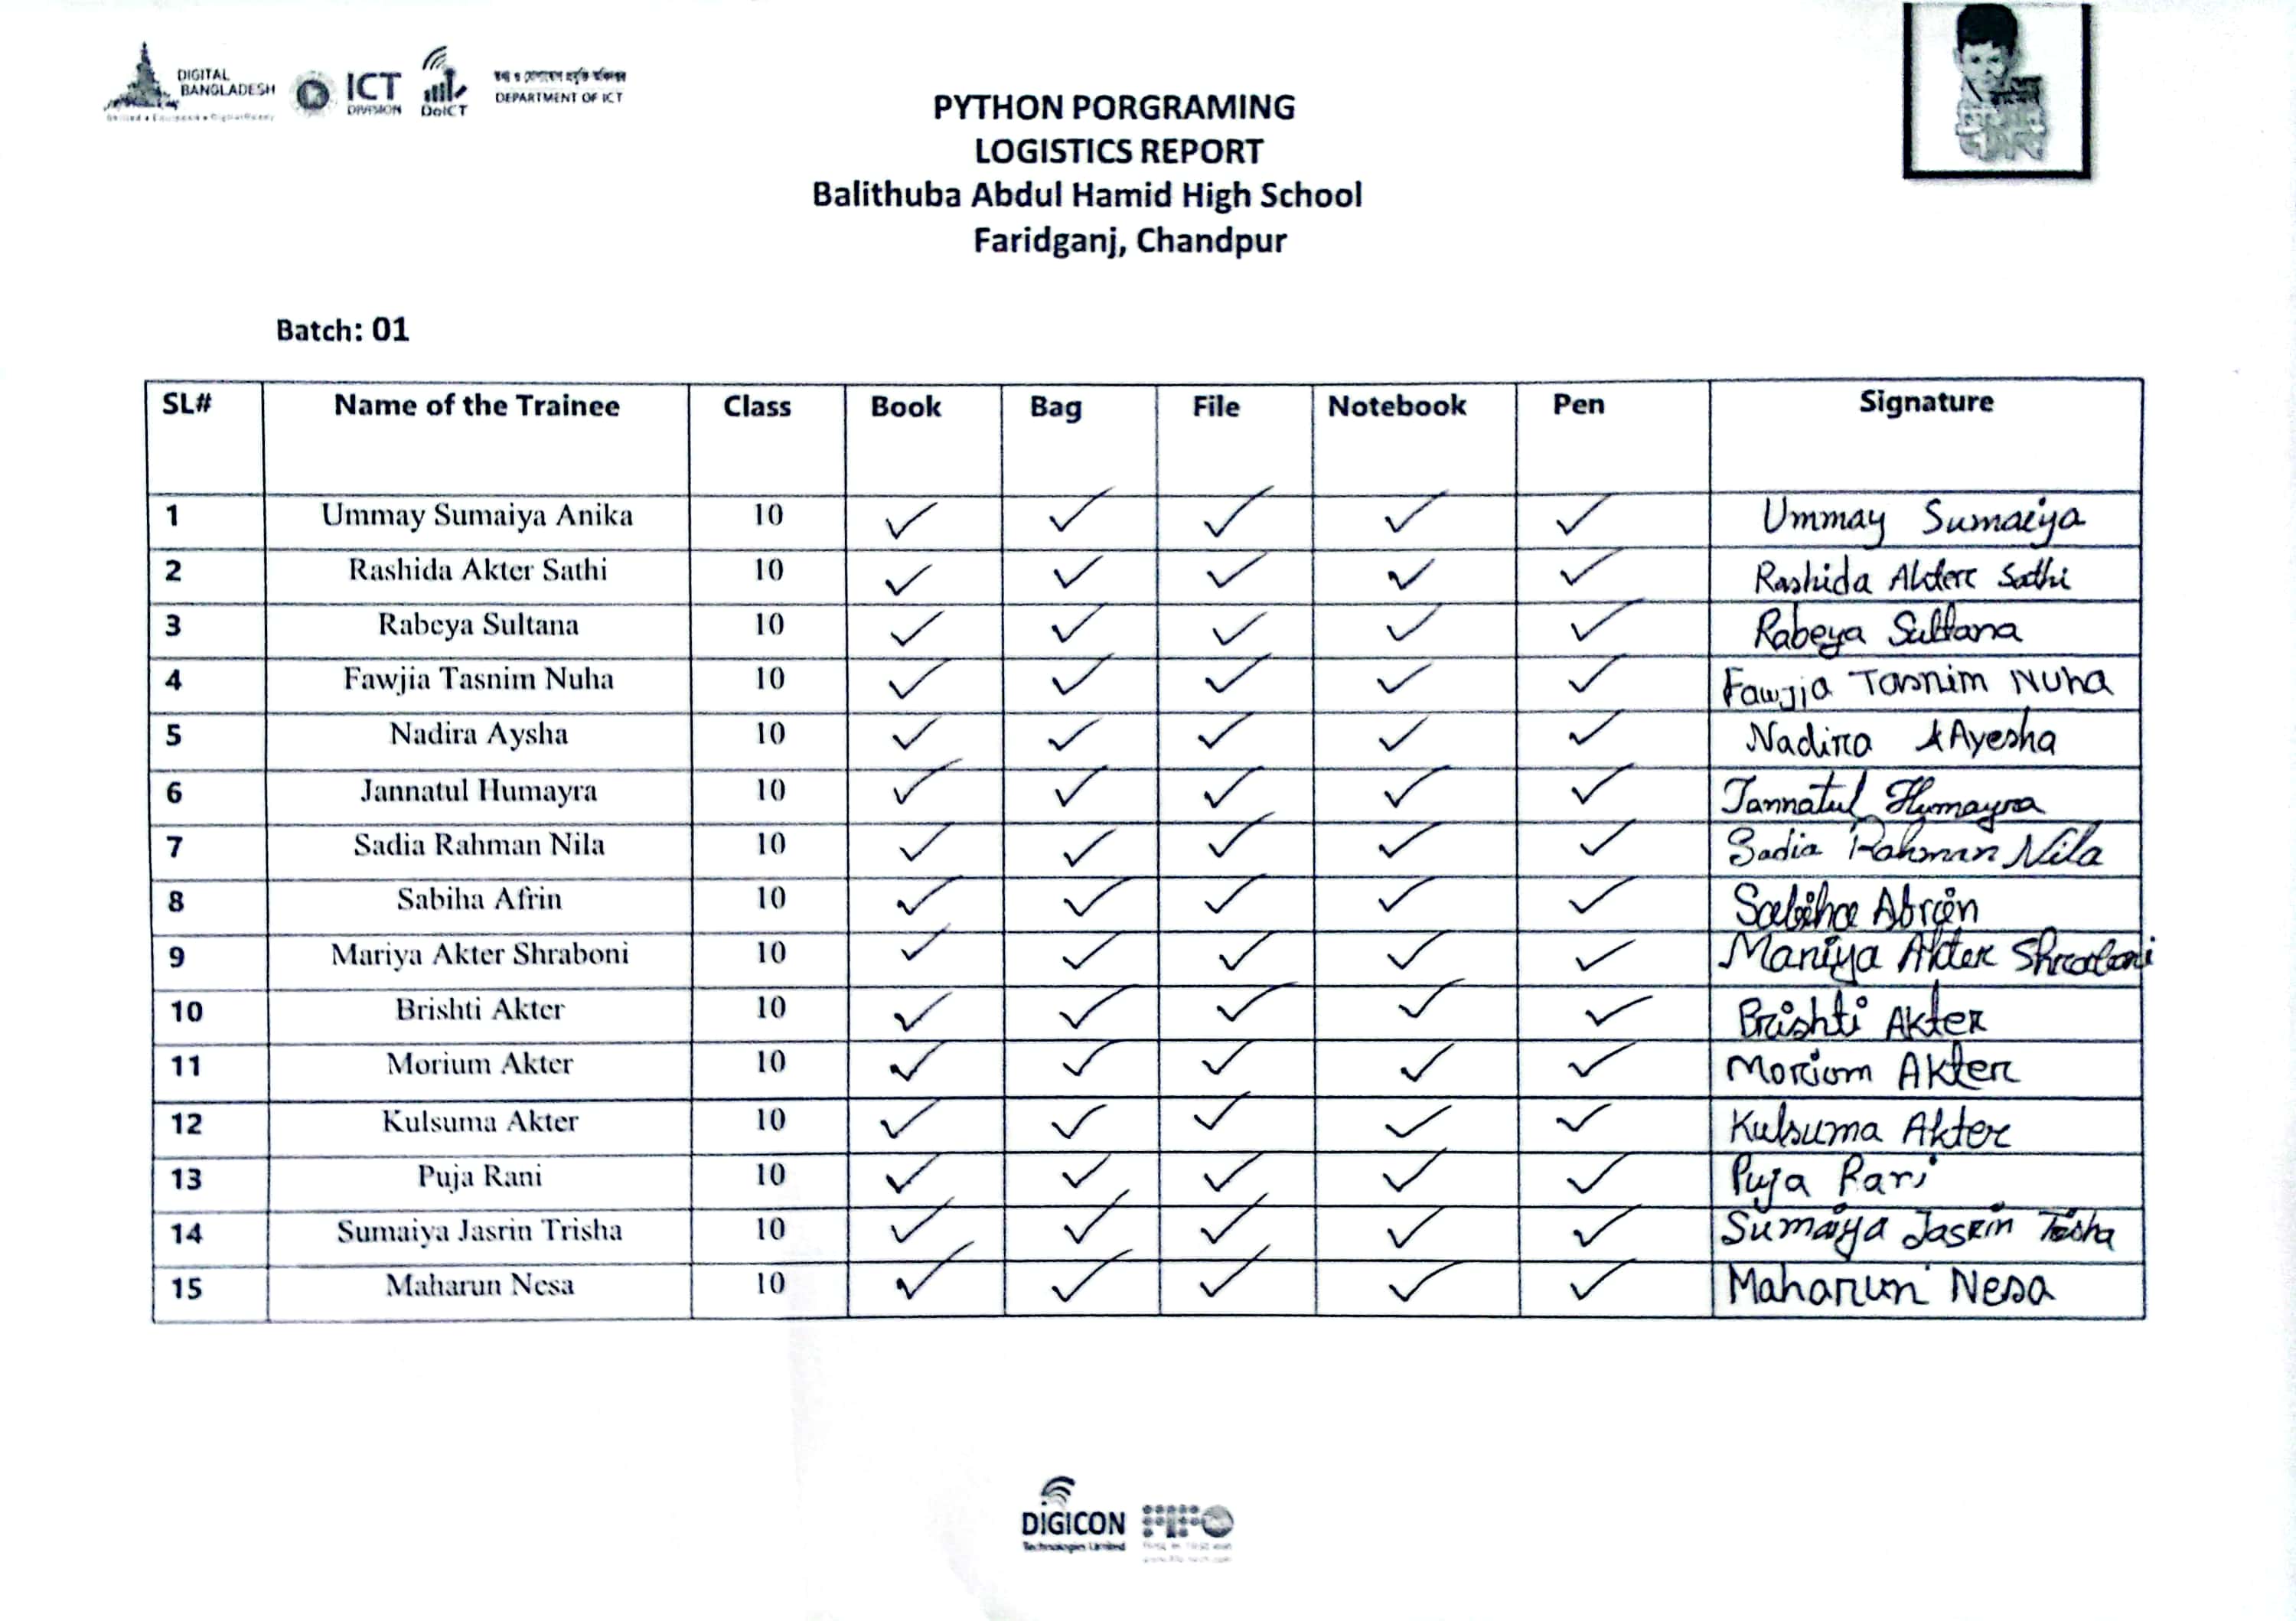 DIGITAL
BANGLADESH
ICT
DIVISION
DoICT
তথ্য ও যোগাযোগ প্রযুক্তি অধিদপ্তর
DEPARTMENT OF ICT
PYTHON PORGRAMING
LOGISTICS REPORT
Balithuba Abdul Hamid High School
Faridganj, Chandpur
Batch: 01
SL# Name of the Trainee Class Book Bag File Notebook Pen Signature
1 Ummay Sumaiya Anika 10 ✓ ✓ ✓ ✓ ✓ Ummay Sumaiya
2 Rashida Akter Sathi 10 ✓ ✓ ✓ ✓ ✓ Rashida Akter Sathi
3 Rabeya Sultana 10 ✓ ✓ ✓ ✓ ✓ Rabeya Sultana
4 Fawjia Tasnim Nuha 10 ✓ ✓ ✓ ✓ ✓ Fawjia Tasnim Nuha
5 Nadira Aysha 10 ✓ ✓ ✓ ✓ ✓ Nadira Ayesha
6 Jannatul Humayra 10 ✓ ✓ ✓ ✓ ✓ Jannatul Humayra
7 Sadia Rahman Nila 10 ✓ ✓ ✓ ✓ ✓ Sadia Rahman Nila
8 Sabiha Afrin 10 ✓ ✓ ✓ ✓ ✓ Sabiha Afrin
9 Mariya Akter Shraboni 10 ✓ ✓ ✓ ✓ ✓ Mariya Akter Shraboni
10 Brishti Akter 10 ✓ ✓ ✓ ✓ ✓ Brishti Akter
11 Morium Akter 10 ✓ ✓ ✓ ✓ ✓ Morium Akter
12 Kulsuma Akter 10 ✓ ✓ ✓ ✓ ✓ Kulsuma Akter
13 Puja Rani 10 ✓ ✓ ✓ ✓ ✓ Puja Rani
14 Sumaiya Jasrin Trisha 10 ✓ ✓ ✓ ✓ ✓ Sumaiya Jasrin Trisha
15 Maharun Nesa 10 ✓ ✓ ✓ ✓ ✓ Maharun Nesa
DIGICON
Technologies Limited